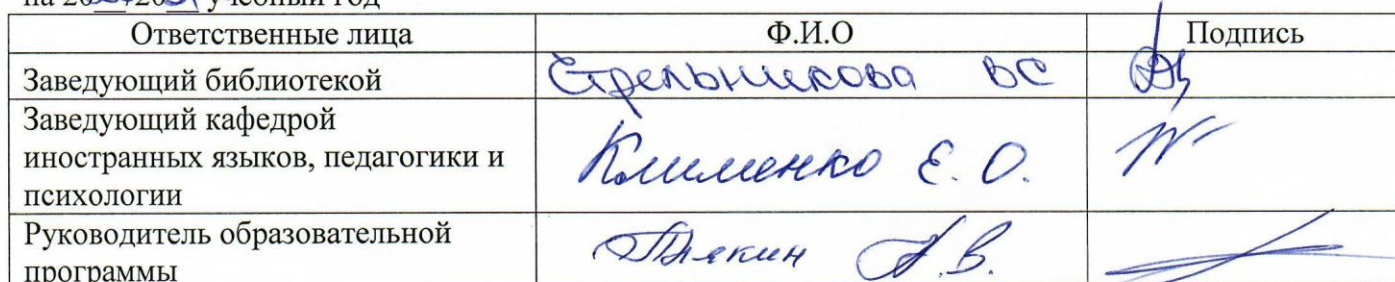 на 20 20 учебный год
Ответственные лица Ф.И.О Подпись
Заведующий библиотекой Стрельникова ВС
Заведующий кафедрой
иностранных языков, педагогики и
психологии
Клименко Е. О.
Руководитель образовательной
программы
В.